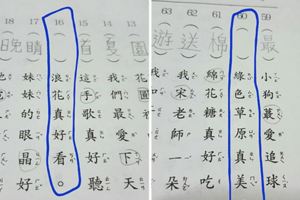 13
園
14
夏
我們最愛下天
15
首
這手歌真好聽
16
浪花真好看。
17
睛
妹妹的眼晶好
晚
59
最
小狗蕞愛追球
60
綠色草原真美
61
棉
綿花糖真好吃
62
送
我宋老師一朵
63
遊